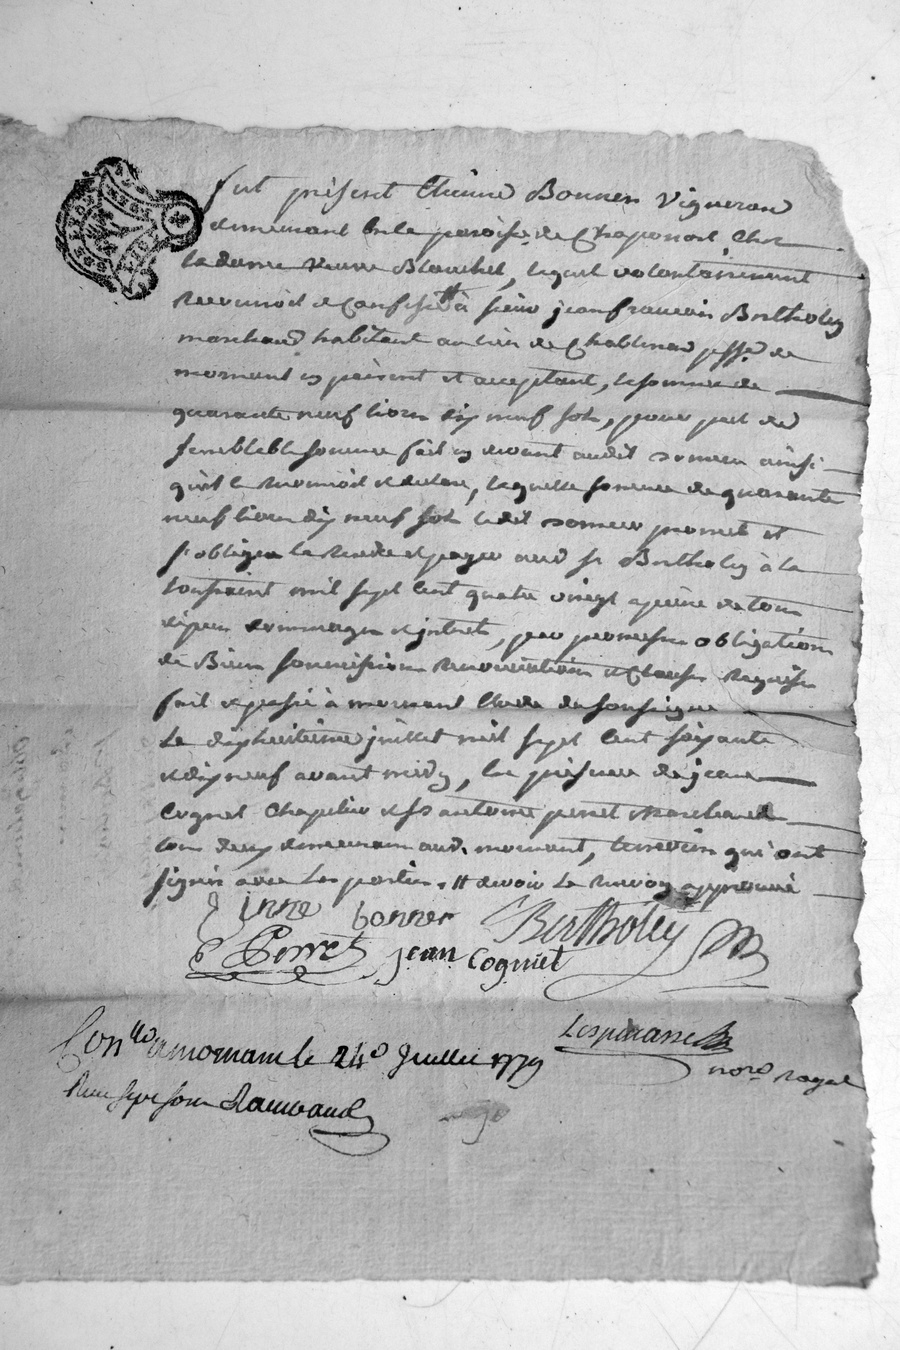 fut présent Etienne Bonner vigneron
demeurant en la paroisse de Chaponost, chez
la dame veuve Blanchet, lequel volontairement
reconnoit & confesse # à sieur jean francois Bertholey
marchand habitant au lieu de Chablenas psse de
mornant cy présent et acceptant, la somme de
quarante neuf livres dix neuf sols, pour pret de
semblable somme fait cy devant audit Bonner ainsi
qu'il le reconnoit & declare, laquelle somme de quarante
neuf livres dix neuf sols ledit Bonner promet et
s'oblige la rendre et payer aud sr Bertholey à la
toussaint mil sept cent quatre vingt a peine de tous
dépens dommages & interets, par promesse obligation
de Biens soumission renonciation & Clauses requises
fait & passé à mornant Etude du soussigné
Le dixhuitieme juillet mil sept cent soixante
& dix neuf avant midy, En présence de jean
Cognet Chapelier & sr antoine perret Marchand
tous deux demeurant aud. mornant, temoins qui ont
signés avec les parties. # devoir Le renvoy approuvé
Etinne bonner Bertholey
Perret jean Cogniet
Lesperasse
Conllé a mornant le 24e Juillet 1779
Reçu sept sols
notre royal